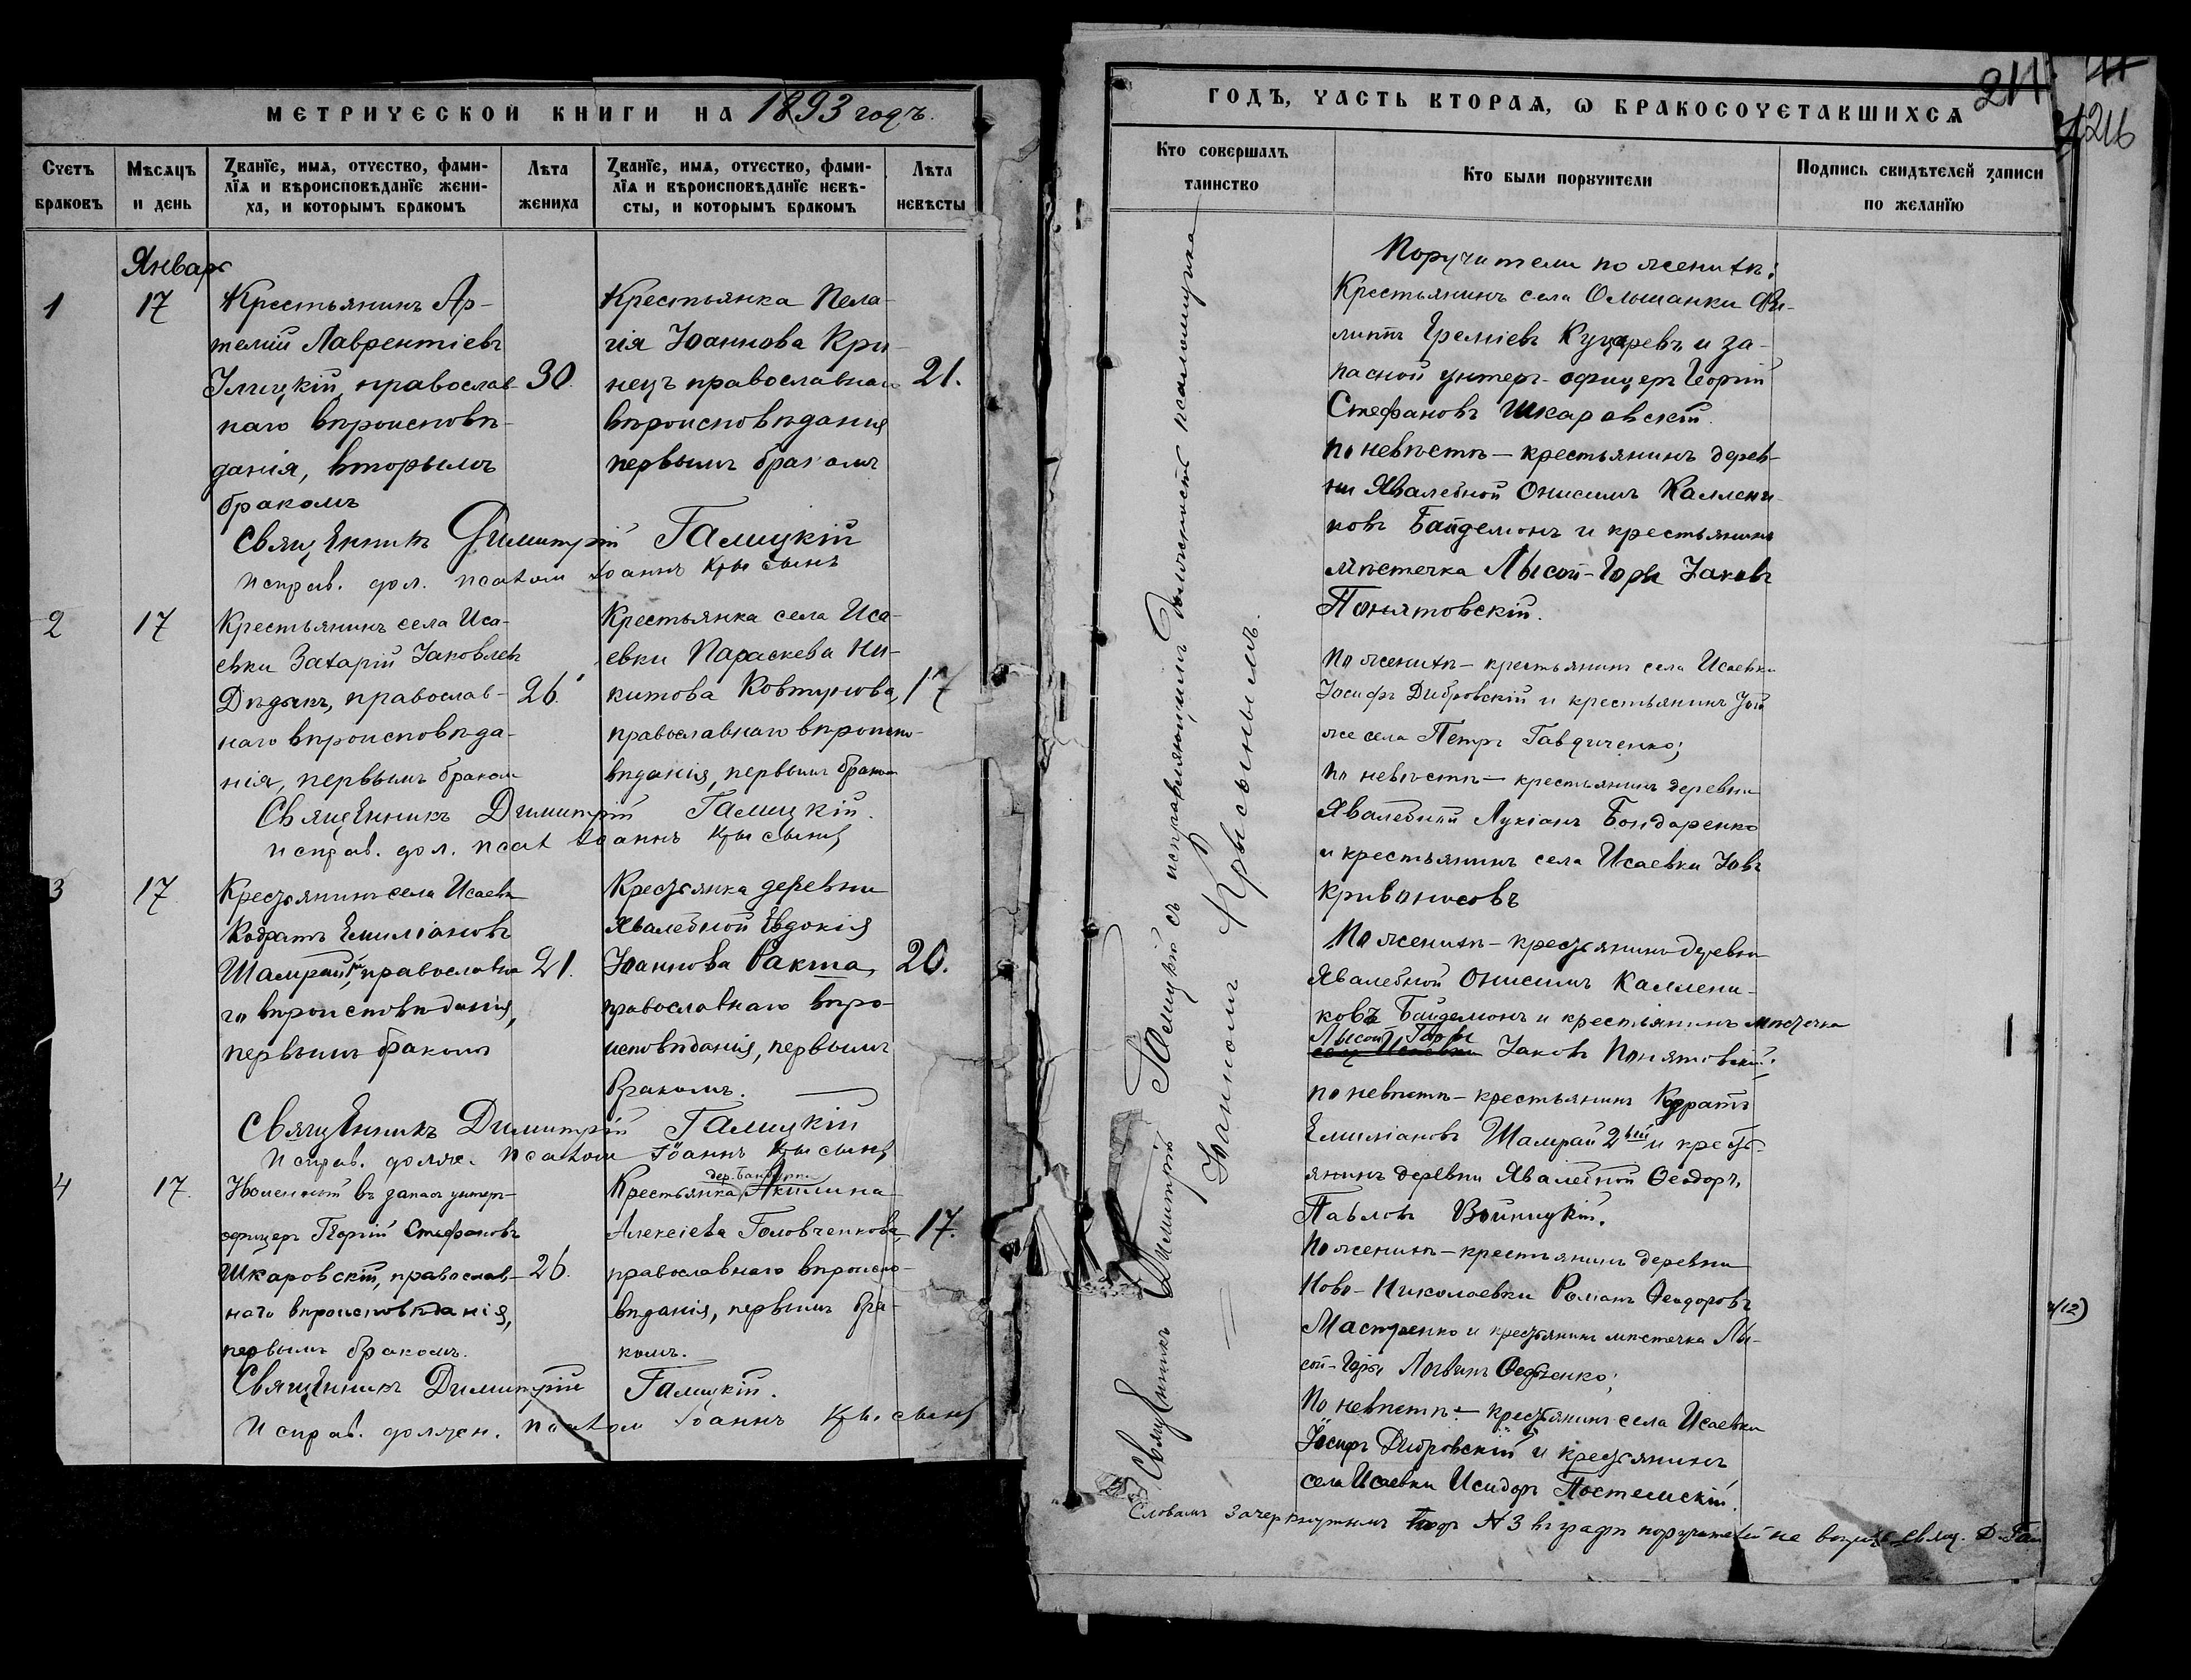 МЕТРИЧЕСКОЙ КНИГИ НА 1893 годъ.
Счетъ браковъ
Мѣсяцъ и день
Званіе, имя, отчество, фами-
лія и вѣроисповѣданіе жени-
ха, и которымъ бракомъ
Лѣта жениха
Званіе, имя, отчество, фами-
лія и вѣроисповѣданіе невѣ-
сты, и которымъ бракомъ
Лѣта невѣсты
Январь
1
17
Крестьянинъ Ар-
темій Лаврентіевъ
Ілицкій, православ-
наго вѣроисповѣ-
данія, вторымъ
бракомъ
30.
Крестьянка Пела-
гія Іоаннова Кри-
нецъ православнаго
вѣроисповѣданія
первымъ бракомъ
21.
Священникъ Димитрій Галицкій
Исправ. дол. псалом Іоаннъ Крысынъ
2
17
Крестьянинъ села Иса-
евки Захарій Іаковлевъ
Дѣдыкъ, православ-
наго вѣроисповѣда-
нія, первымъ браком
26.
Крестьянка села Иса-
евки Параскева Ни-
китова Ковтунова,
православнаго вѣроиспо-
вѣданія, первымъ браком
17
Священникъ Димитрій Галицкій.
исправ. дол. псал Іоаннъ Крысынъ
3
17.
Крестьянинъ села Исаевки
Кодратъ Емиліановъ
Шамрай, православна
го вѣроисповѣданія,
первымъ бракомъ
21.
Крестьянка деревни
Явалебной Евдокія
Іоаннова Ракша,
православнаго вѣро-
исповѣданія, первымъ
бракомъ.
20.
Священникъ Димитрій Галицкій
Исправ. долж. псалом Іоаннъ Крысынъ
4
17.
въ запас унтеръ-
офицеръ Георгій Стефановъ
Шкаровскій, православ-
наго вѣроисповѣданія,
первымъ бракомъ.
26.
дер.
Крестьянка Акилина
Алексіева Головченкова,
православнаго вѣроиспо-
вѣданія, первымъ бра-
комъ.
17.
Священникъ Димитрій Галицкій.
Исправ. должн. псалом Іоаннъ Крысынъ
ГОДЪ, ЧАСТЬ ВТОРАЯ, О БРАКОСОЧЕТАВШИХСЯ
211
216
Кто совершалъ таинство
Кто были поручители
Подпись свидѣтелей записи по желанію
Священникъ Димитрій Галицкій съ исправляющимъ должность псаломщика
Іоанномъ Крысынымъ.
Поручители по женихѣ:
Крестьянинъ села Ольшанки Фи-
липпъ Еремiевъ Куцаревъ и за-
пасной унтеръ-офицеръ Георгій
Стефановъ Шкаровскій.
по невѣстѣ — крестьянинъ дерев-
ни Явалебной Онисимъ Каллени-
ковъ Байдемонъ и крестьянинъ
мѣстечка Лысой-Горы Іаковъ
Понятовскій.
по женихѣ — крестьянинъ села Исаевки
Іосифъ Дибровскій и крестьянинъ той
же села Петръ Гавдиченко;
по невѣстѣ — крестьянинъ деревни
Явалебной Лукіанъ Бондаренко
и крестьянинъ села Исаевки Іовъ
Кривоносовъ
По женихѣ — крестьянинъ деревни
Явалебной Онисимъ Каллени-
ковъ Байдемонъ и крестьянинъ мѣстечка
Лысой Горы
села Исаевки Іаковъ Понятовскій.
по невѣстѣ — крестьянинъ Кодратъ
Емиліановъ Шамрай 2ый и кресть-
янинъ деревни Явалебной Феодоръ
Павловъ Войницкій.
По женихѣ — крестьянинъ деревни
Ново-Николаевки Романъ Феодоровъ
Мастренко и крестьянинъ мѣстечка Лы-
сой-Горы Логвинъ Федченко;
По невѣстѣ — крестьянинъ села Исаевки
Іосифъ Дибровскій и крестьянинъ
села Исаевки Исидоръ Постемскій.
Словамъ зачеркнутымъ подъ № 3 въ графѣ поручителей не вѣрить свящ. Д. Гал